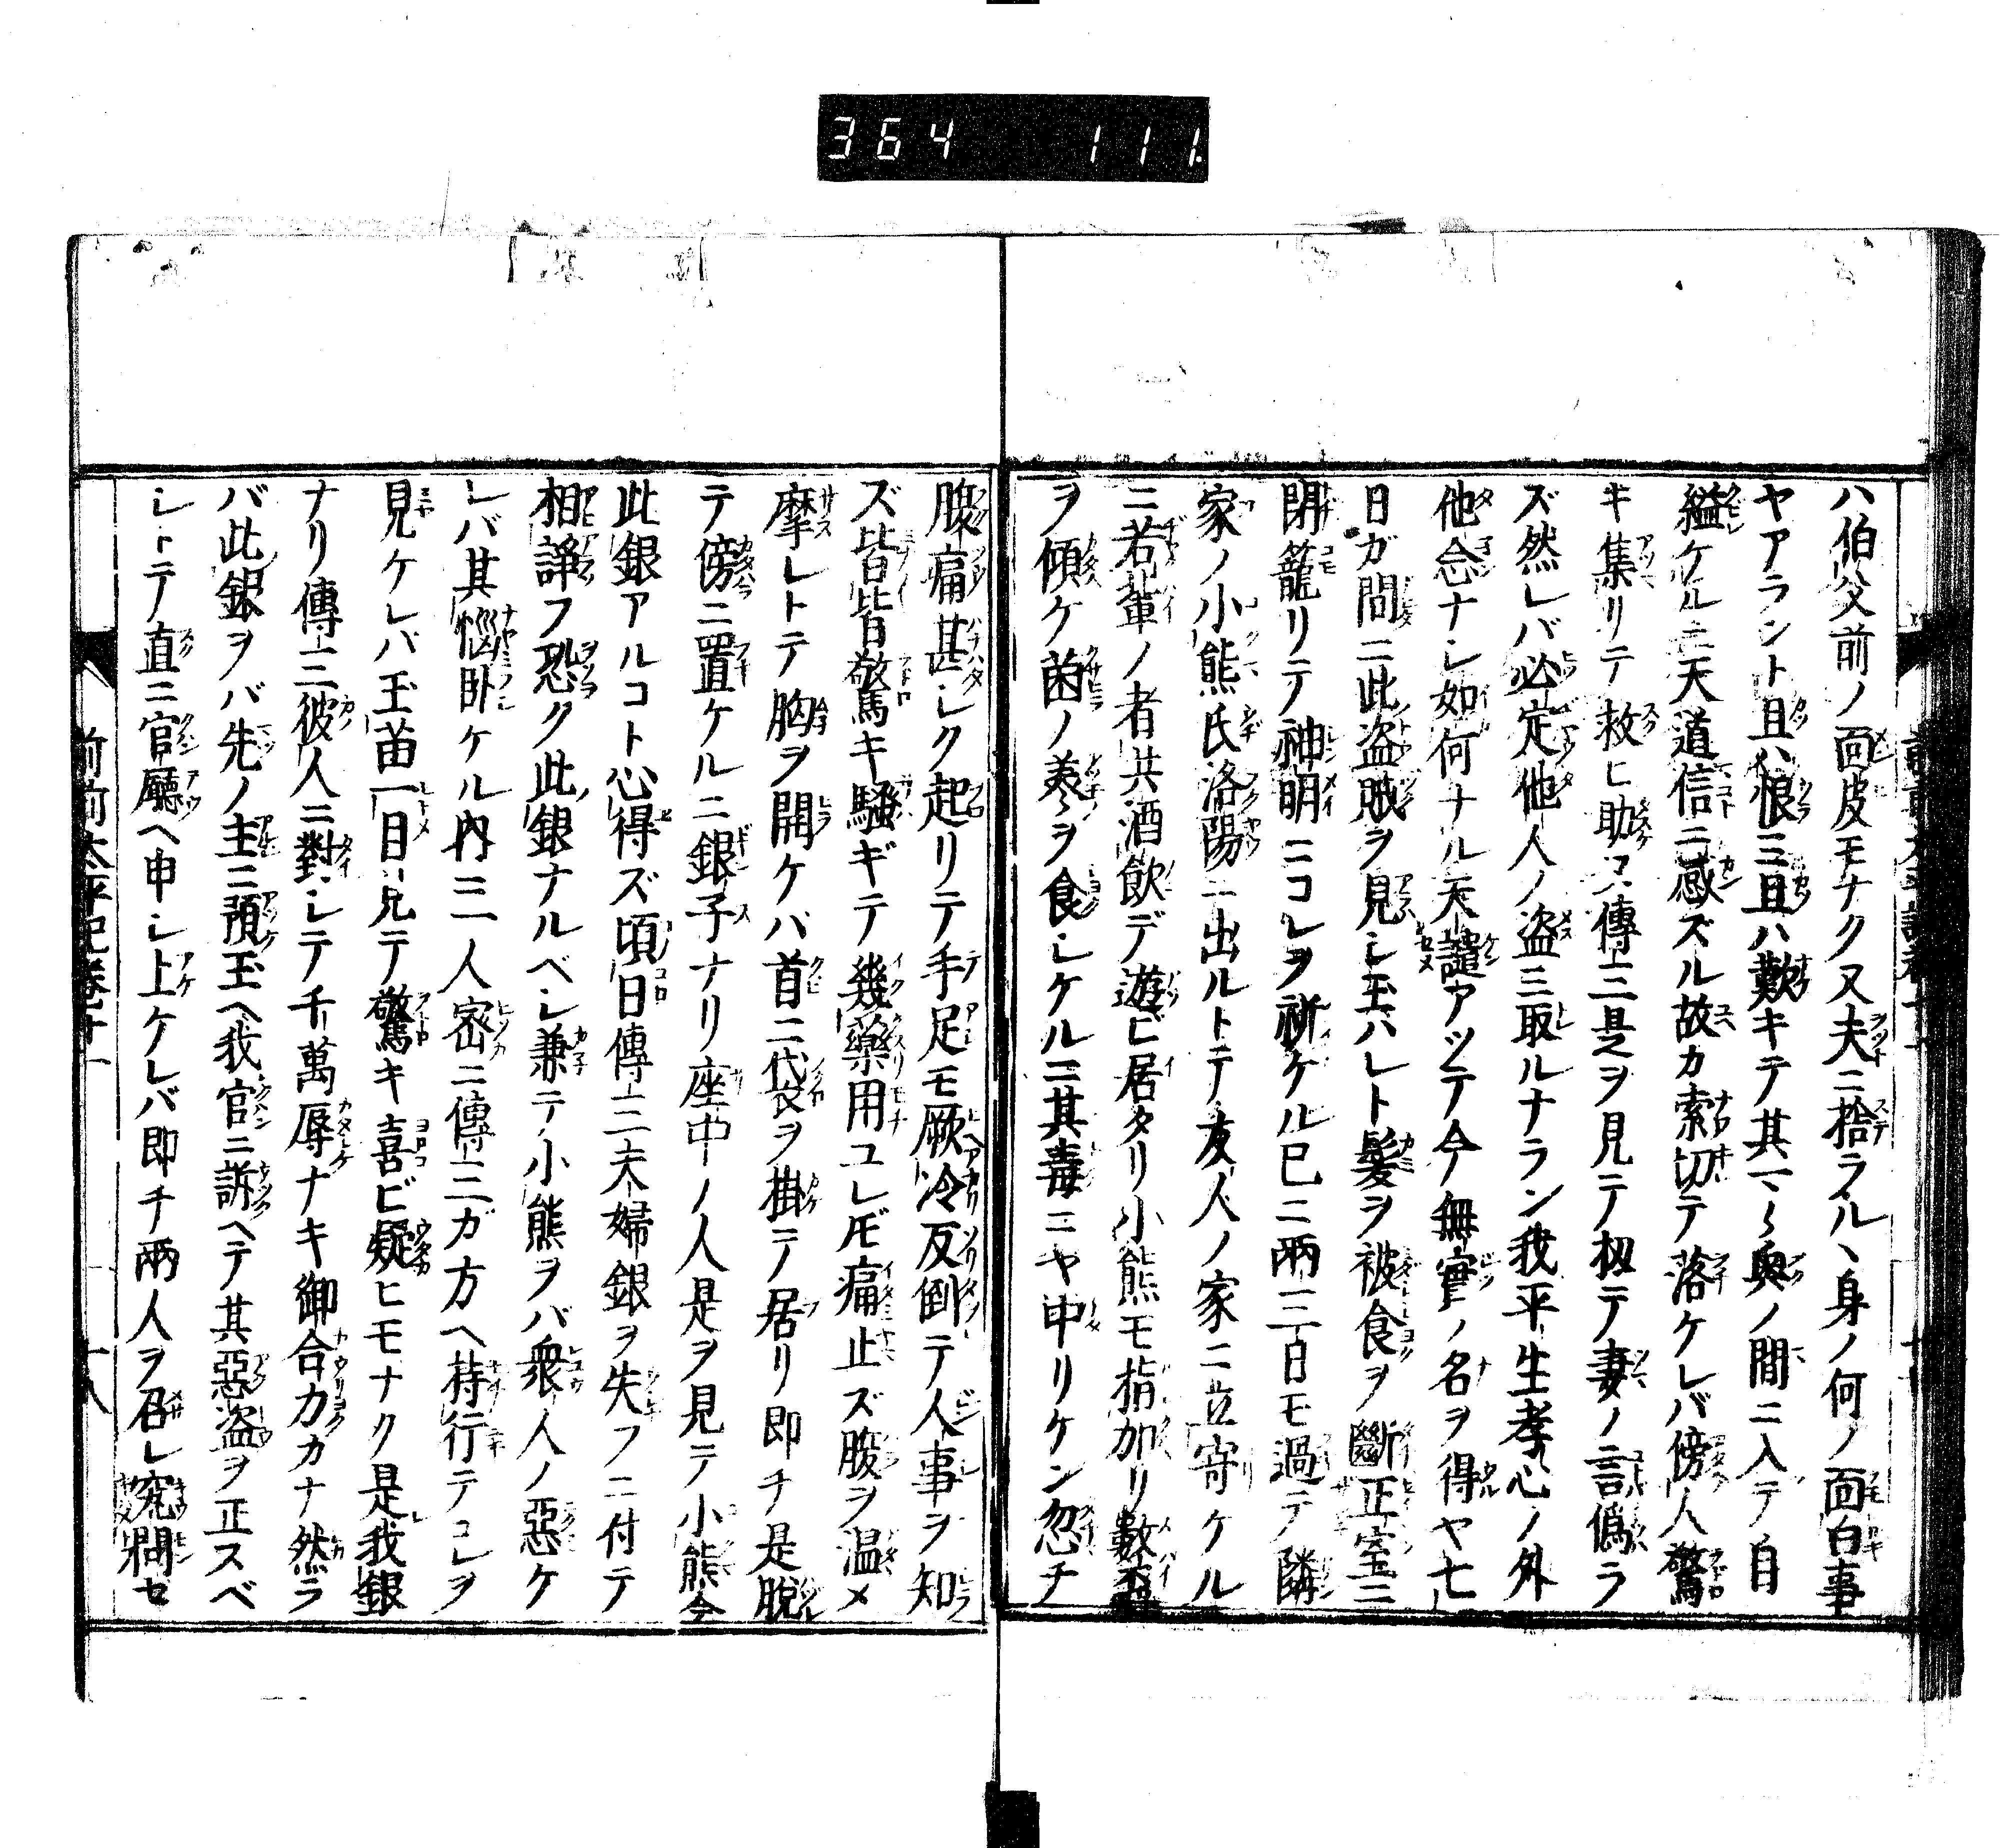 364 111
ハ伯父前ノ面皮モナク又夫ニ捨ラル、身ノ何ノ面白事
ヤアラント且ハ恨ミ且ハ歎キテ其マヽ奥ノ間ニ入テ自
縊ケルニ天道信ニ感ズル故カ索切テ落ケレバ傍人驚
キ集リテ救ヒ助ク傳三是ヲ見テ扨テ妻ノ言僞ラ
ズ然レバ必定他人ノ盗ミ取ルナラン我平生孝心ノ外
他念ナシ如何ナル天譴アツテ今無實ノ名ヲ得ヤ七
日ガ間ニ此盗賊ヲ見シ玉ハレト髪ヲ被食ヲ斷正室ニ
閉籠リテ神明ニコレヲ祈ケル已ニ兩三日モ過テ隣
家ノ小熊氏洛陽ニ出ルトテ友人ノ家ニ立寄ケル
ニ若輩ノ者共酒飲デ遊ビ居タリ小熊モ指加リ數盃
ヲ傾ケ菌ノ羹ヲ食シケルニ其毒ニヤ中リケン忽チ
腹痛甚シク起リテ手足モ厥冷反倒テ人事ヲ知
ズ皆皆驚キ騒ギテ幾藥用ユレ𪜈痛止ズ腹ヲ温メ
摩レトテ胸ヲ開ケバ首ニ袋ヲ掛テ居リ即チ是脱
テ傍ニ置ケルニ銀子ナリ座中ノ人是ヲ見テ小熊今
此銀アルコト心得ズ頃日傳三夫婦銀ヲ失フニ付テ
相諍フ恐ク此銀ナルベシ兼テ小熊ヲバ衆人ノ惡ケ
レバ其惱臥ケル内ニ一人密ニ傳三ガ方ヘ持行テコレヲ
見ケレバ玉苗一目見テ驚キ喜ビ疑ヒモナク是我銀
ナリ傳三彼人ニ對シテ千萬辱ナキ御合力カナ然ラ
バ此銀ヲバ先ノ主ニ預玉ヘ我官ニ訴ヘテ其惡盗ヲ正スベ
シトテ直ニ官廳ヘ申シ上ケレバ即チ兩人ヲ召レ窮問セ
前前太平記卷十一
十八